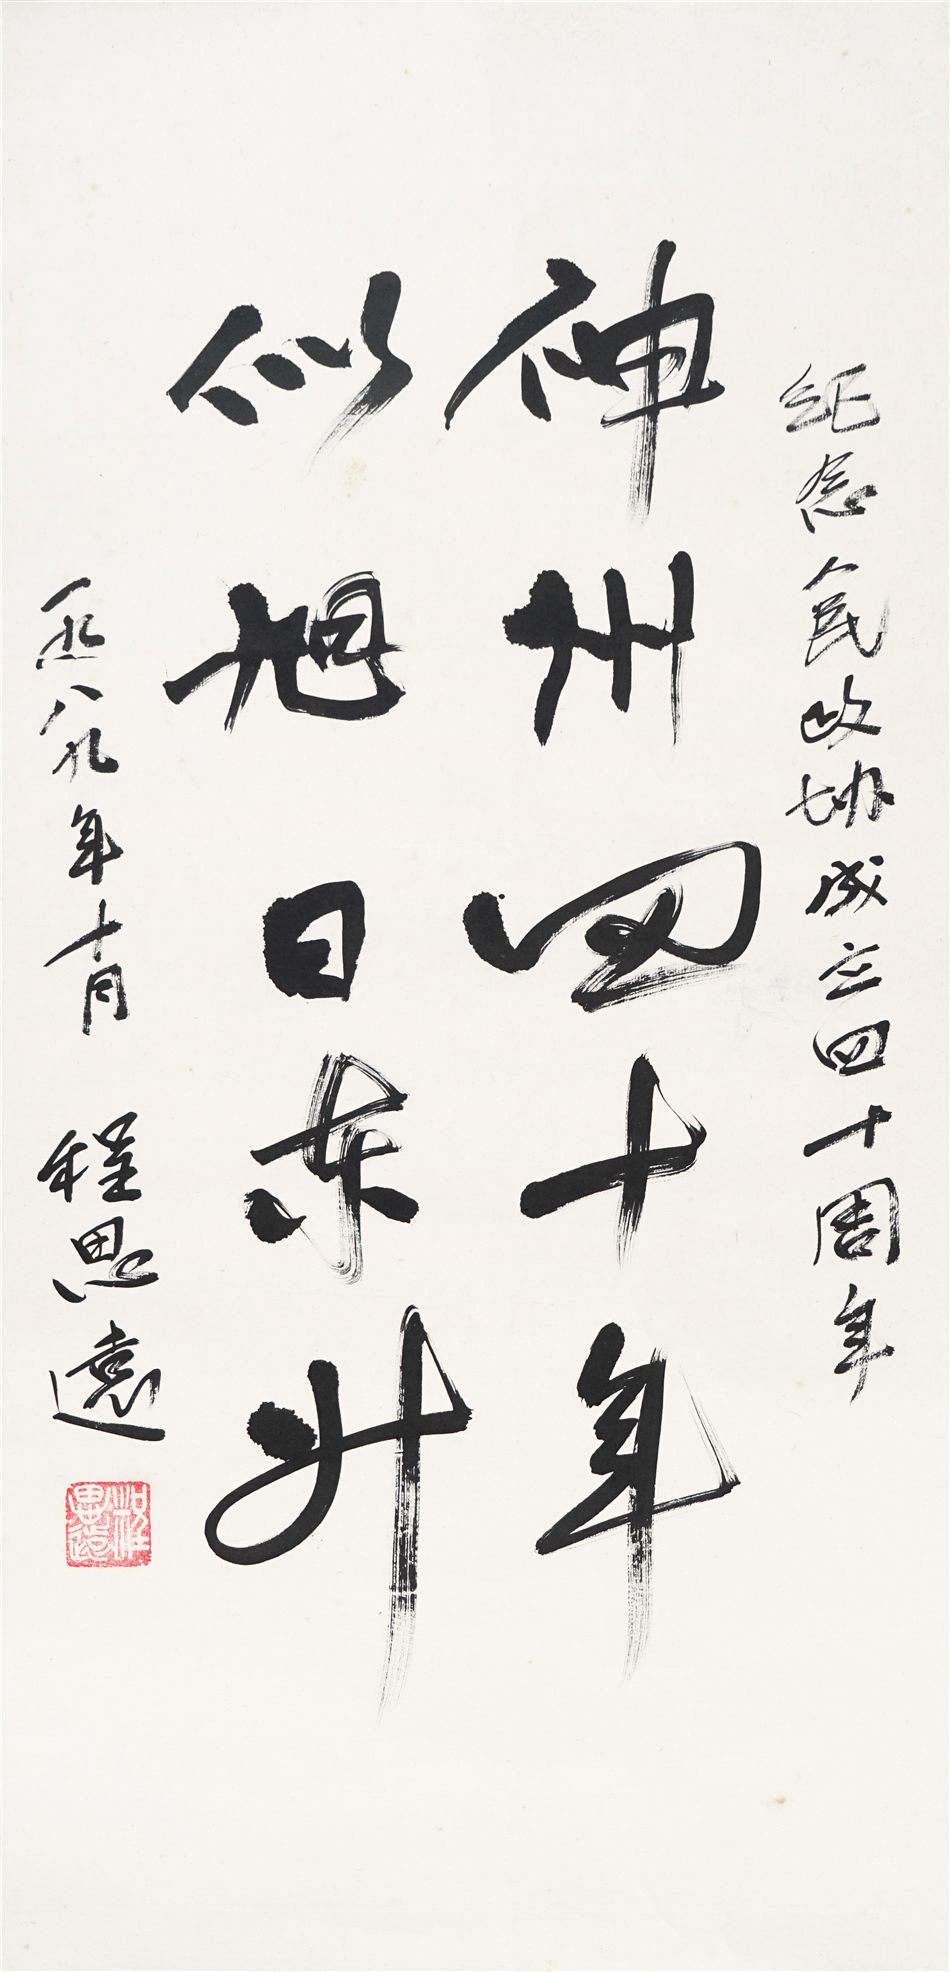 纪念人民政协成立四十周年
神州四十年
似旭日东升
一九八九年十月 程思远